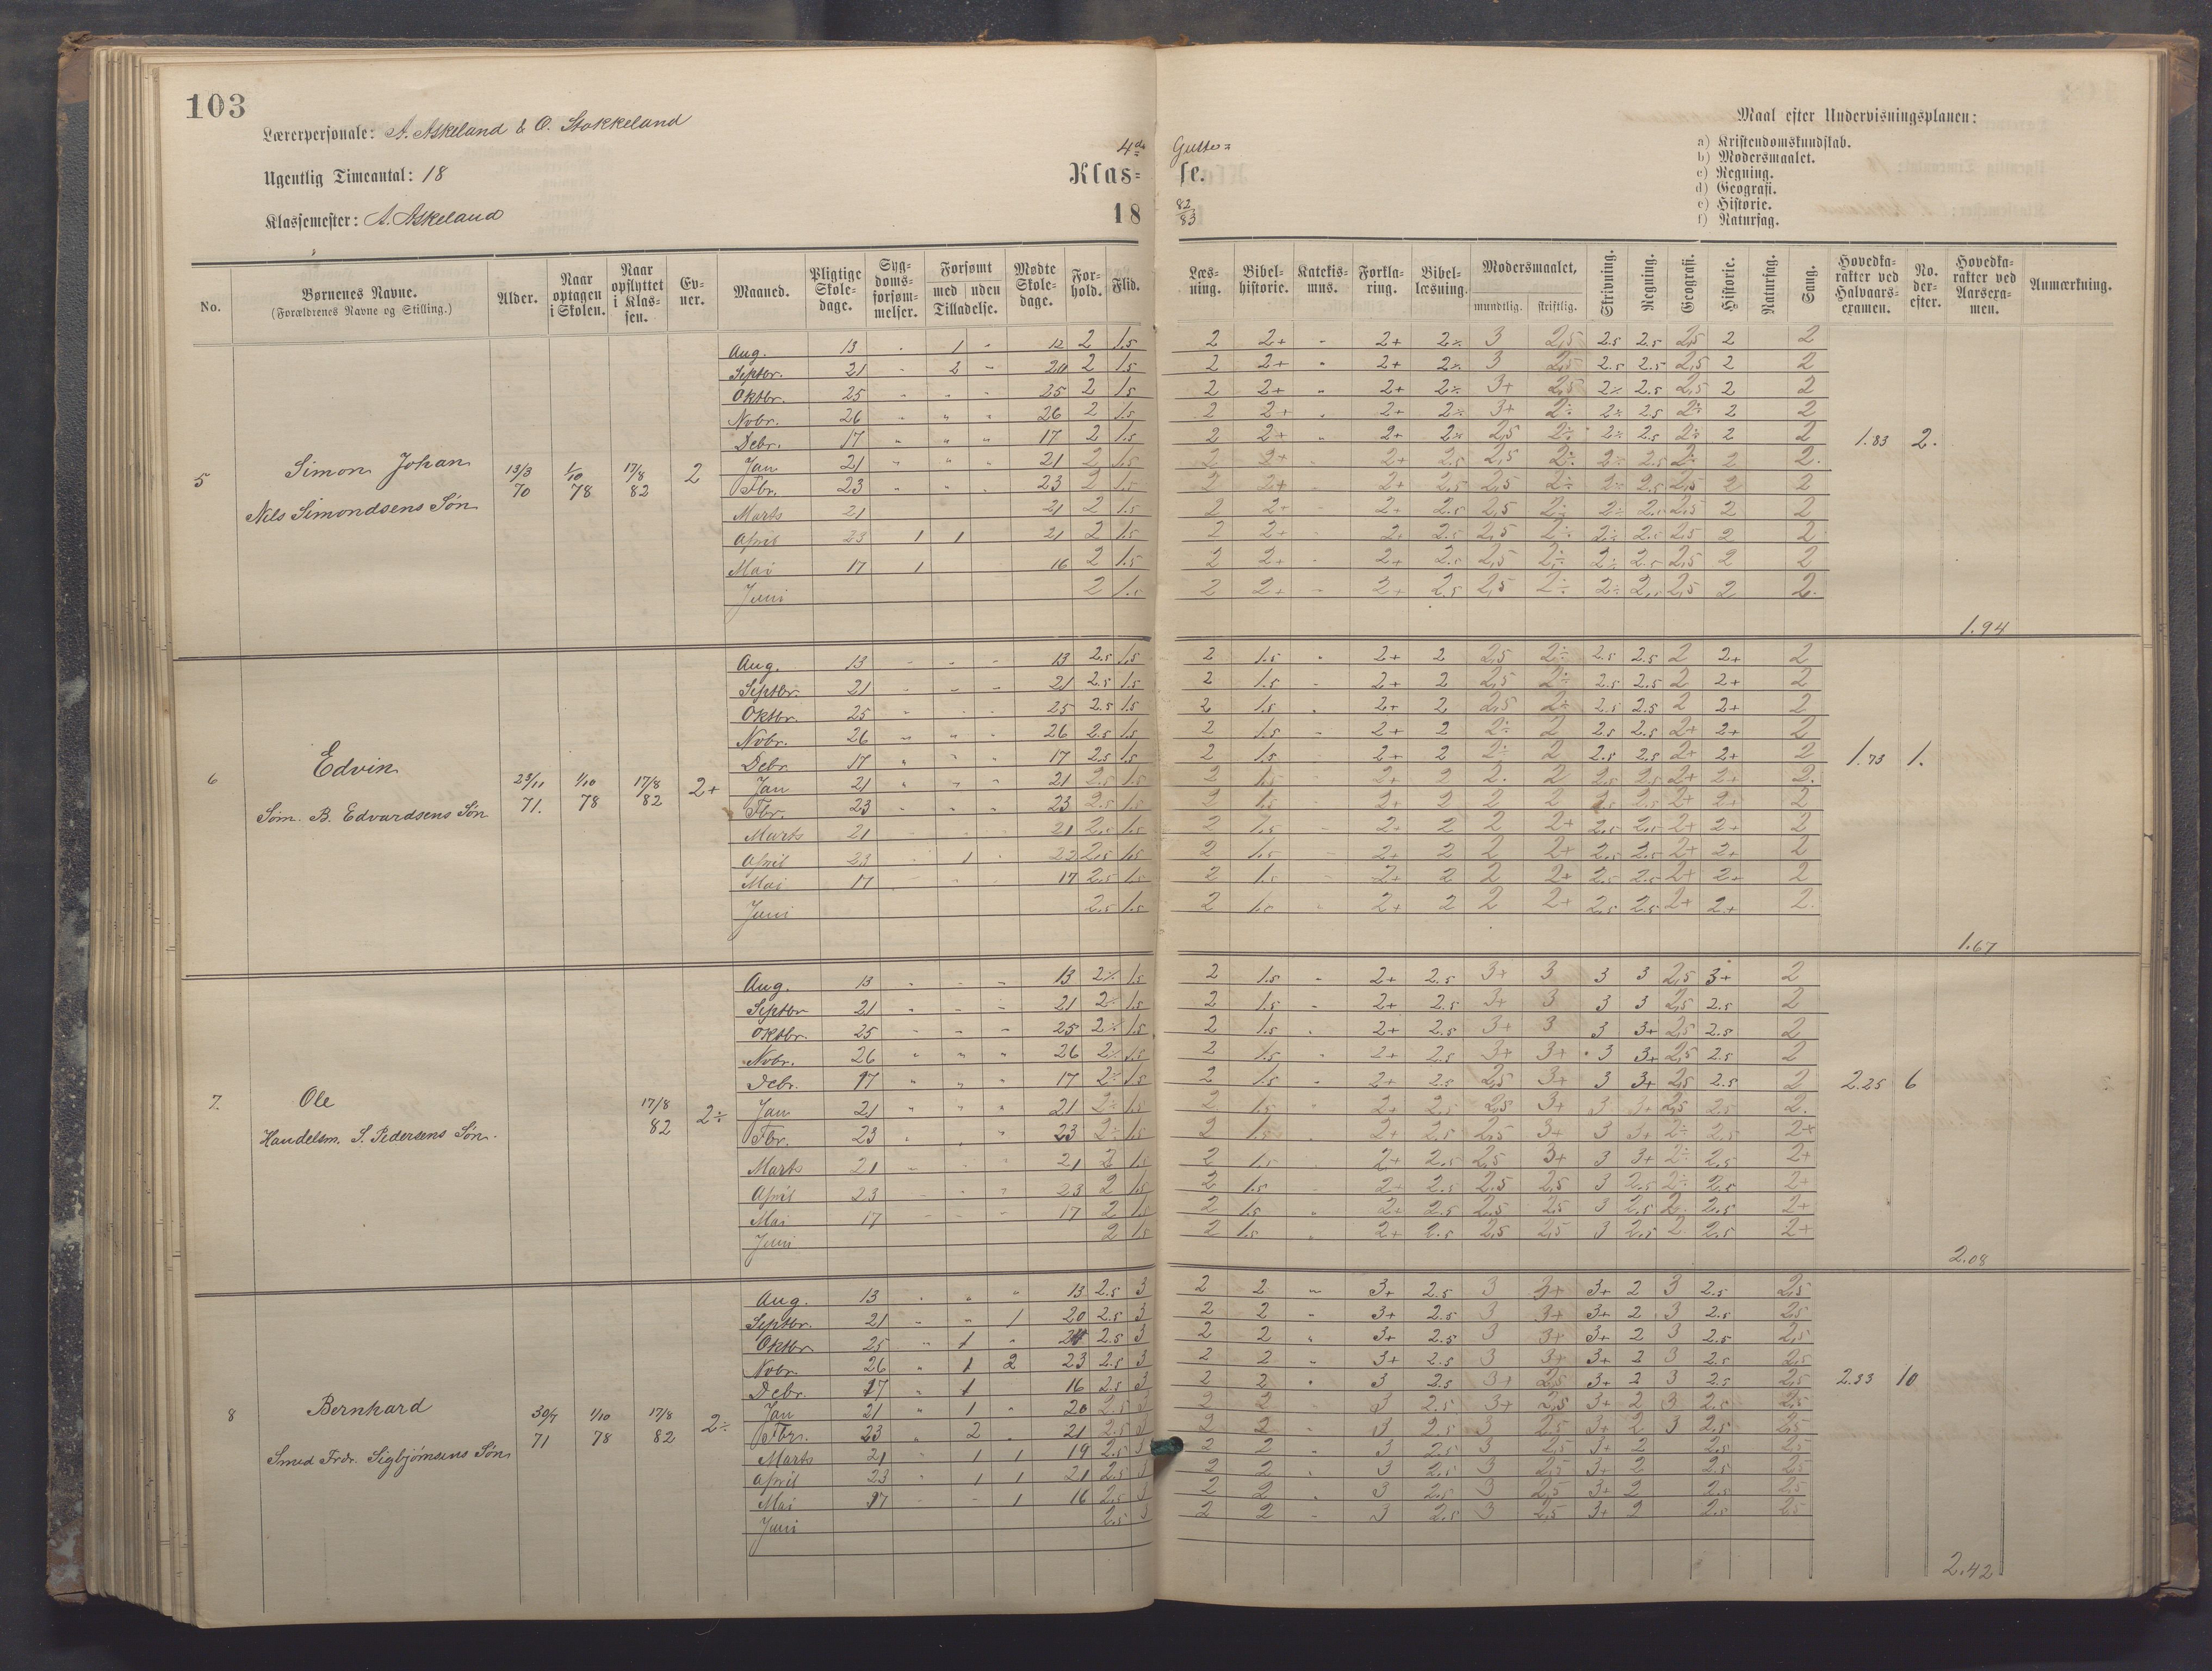 103
Lærerpersonale: A. Askeland & O. Stokkeland
Ugentlig Timeantal: 18
Klassemester: A. Askeland
4de Gutte=
Klas= se.
18 82/83
Maal efter Undervisningsplanen:
a) Kristendomskundskab.
b) Modersmaalet.
c) Regning.
d) Geografi.
e) Historie.
f) Naturfag.
No. | Børnenes Navne. (Forældrenes Navne og Stilling.) | Alder. | Naar optagen i Skolen. | Naar opflyttet i Klassen. | Evner. | Maaned. | Pligtige Skoledage. | Sygdomsforsømmelser. | Forsømt med uden Tilladelse. | Mødte Skoledage. | Forhold. | Flid. | Læsning. | Bibelhistorie. | Katekismus. | Forklaring. | Bibellæsning. | Modersmaalet, mundtlig. skriftlig. | Skrivning. | Regning. | Geografi. | Historie. | Naturfag. | Sang. | Hovedkarakter ved Halvaarsexamen. | No. derefter. | Hovedkarakter ved Aarsexamen. | Anmærkning.
5 Simon Johan
Nils Simondsens Søn
13/3 70 | 1/10 78 | 17/8 82 | 2
Aug. 13 " 1 " 12 2 1.5 | 2 2+ " 2+ 2÷ 3 2,5 2.5 2.5 2,5 2 2
Septbr. 21 " 2 " 20 2 1.5 | 2 2+ " 2+ 2÷ 3 2,5 2.5 2.5 2,5 2 2
Oktbr. 25 " " " 25 2 1.5 | 2 2+ " 2+ 2÷ 3+ 2,5 2÷ 2.5 2,5 2 2
Nvbr. 26 " " " 26 2 1.5 | 2 2+ " 2+ 2÷ 3+ 2÷ 2÷ 2.5 2÷ 2 2
Debr. 17 " " " 17 2 1.5 | 2 2+ " 2+ 2÷ 2,5 2÷ 2÷ 2.5 2÷ 2 2 | 1.83 2.
Jan 21 " " " 21 2 1.5 | 2 2+ 2+ 2.5 2,5 2÷ 2÷ 2.5 2÷ 2 2.
Fbr. 23 " " " 23 2 1.5 | 2 2+ 2+ 2.5 2,5 2÷ 2÷ 2.5 2,5 2 2
Marts 21 21 2 1.5 | 2 2+ " 2+ 2.5 2,5 2÷ 2÷ 2.5 2,5 2 2
April 23 1 1 21 2 1.5 | 2 2+ " 2+ 2.5 2,5 2÷ 2÷ 2.5 2,5 2 2
Mai 17 1 16 2 1.5 | 2 2+ " 2+ 2.5 2,5 2÷ 2÷ 2.5 2,5 2 2
Juni 2 1.5 | 2 2+ " 2+ 2.5 2,5 2÷ 2÷ 2.5 2,5 2 2.
1.94
6 Edvin
Søm. B. Edvardsens Søn
23/11 71. | 1/10 78 | 17/8 82 | 2+
Aug. 13 " " " 13 2.5 1.5 | 2 1.5 " 2+ 2 2,5 2÷ 2.5 2.5 2 2+ 2
Septbr. 21 " " " 21 2.5 1.5 | 2 1.5 " 2+ 2 2,5 2÷ 2.5 2.5 2 2+ 2
Oktbr. 25 " " " 25 2.5 1.5 | 2 1.5 " 2+ 2 2,5 2÷ 2.5 2.5 2 2+ 2
Nvbr. 26 " " " 26 2.5 1.5 | 2 1.5 " 2+ 2 2÷ 2 2.5 2.5 2+ 2+ 2
Debr. 17 " " " 17 2.5 1.5 | 2 1.5 " 2+ 2 2÷ 2 2.5 2.5 2+ 2+ 2 | 1.73 1.
Jan 21 " " " 21 2.5 1.5 | 2 1.5 " 2+ 2 2. 2 2.5 2.5 2+ 2+ 2.
Fbr. 23 " " " 23 2.5 1.5 | 2 1.5 " 2+ 2 2 2 2.5 2.5 2+ 2+ 2
Marts 21 " " 21 2.5 1.5 | 2 1.5 " 2+ 2 2 2+ 2.5 2.5 2+ 2+ 2
April 23 " 1 " 22 2.5 1.5 | 2 1.5 " 2+ 2 2 2+ 2.5 2.5 2+ 2+ 2
Mai 17 " " " 17 2.5 1.5 | 2 1.5 " 2+ 2 2 2+ 2.5 2.5 2+ 2+ 2
Juni 2.5 1.5 | 2 1.5 " 2+ 2 2 2+ 2.5 2.5 2+ 2+ 2.
1.67
7. Ole
Handelsm. S. Pedersens Søn.
17/8 82 | 2÷
Aug. 13 " " " 13 2÷ 1.5 | 2 1.5 " 2+ 2.5 3+ 3 3 3 2,5 3+ 2
Septbr 21 " " " 21 2÷ 1.5 | 2 1.5 " 2+ 2.5 3+ 3 3 3 2,5 2.5 2
Oktbr. 25 " " " 25 2÷ 1.5 | 2 1.5 " 2+ 2.5 3+ 3 3 3+ 2,5 2.5 2
Nvbr. 26 " " " 26 2÷ 1.5 | 2 1.5 " 2+ 2.5 3+ 3+ 3 3+ 2,5 2.5 2
Debr. 17 " " " 17 2÷ 1.5 | 2 1.5 " 2+ 2.5 2,5 3+ 3 3+ 2,5 2.5 2 | 2.25 6
Jan 21 " " " 21 2÷ 1.5 | 2 1.5 " 2+ 2.5 2,5 3+ 3 3+ 2,5 2.5 2.
Fbr. 23 " " " 23 2÷ 1.5 | 2 1.5 2+ 2.5 2,5 3+ 3 3+ 2÷ 2.5 2+
Marts 21 " " " 21 2 1.5 | 2 1.5 " 2+ 2.5 2,5 3+ 3 3+ 2÷ 2.5 2+
April 23 " " " 23 2 1.5 | 2 1.5 " 2+ 2.5 2.5 2,5 3 2.5 2÷ 2.5 2+
Mai 17 " " " 17 2 1.5 | 2 1.5 " 2+ 2.5 2,5 2.5 3 2.5 2. 2.5 2+
Juni 2 1.5 | 2 1.5 " 2+ 2.5 2,5 2,5 3 2.5 2. 2.5 2+
2.08
8 Bernhard
Smed Frdr. Sigbjørnsens Søn
30/7 71 | 1/10 78 | 17/8 82 | 2÷
Aug. 13 " " " 13 2.5 3 | 2 2 " 3+ 2.5 3 3+ 3+ 2 3 2.5 2,5
Septbr. 21 " " 1 20 2.5 3 | 2 2 " 3+ 2.5 3 3+ 3+ 2 3 2.5 2,5
Oktbr. 25 " 1 " 24 2.5 3 | 2 2 " 3+ 2.5 3 3+ 3+ 2 3 2.5 2,5
Nvbr. 26 " 1 2 23 2.5 3 | 2 2 " 3+ 2.5 3 3+ 3+ 2 3 2.5 2,5
Debr. 17 " 1 16 2.5 3 | 2 2 " 3 2.5 3+ 2,5 3+ 2 3 2.5 2,5 | 2.33 10
Jan 21 " 1 " 20 2.5 3 | 2 2 3 2.5 3+ 2,5 3+ 2 3 2.5 2,5
Fbr. 23 " 2 " 21 2.5 3 | 2 2 3 2.5 3 2.5 3+ 2 3 2.5 2,5
Marts 21 " 1 1 19 2.5 3 | 2 2 " 3 2.5 3 2,5 3+ 2 2.5 2,5
April 23 " 1 1 21 2.5 3 | 2 2 " 3 2.5 3 2,5 3+ 2 2.5 2,5
Mai 17 " " 1 16 2.5 3 | 2 2 " 3 2.5 3 2,5 3+ 2 2.5 2,5
Juni 2.5 3 | 2 2 " 3 2.5 3 2,5 3+ 2 2.5 2,5
2.42